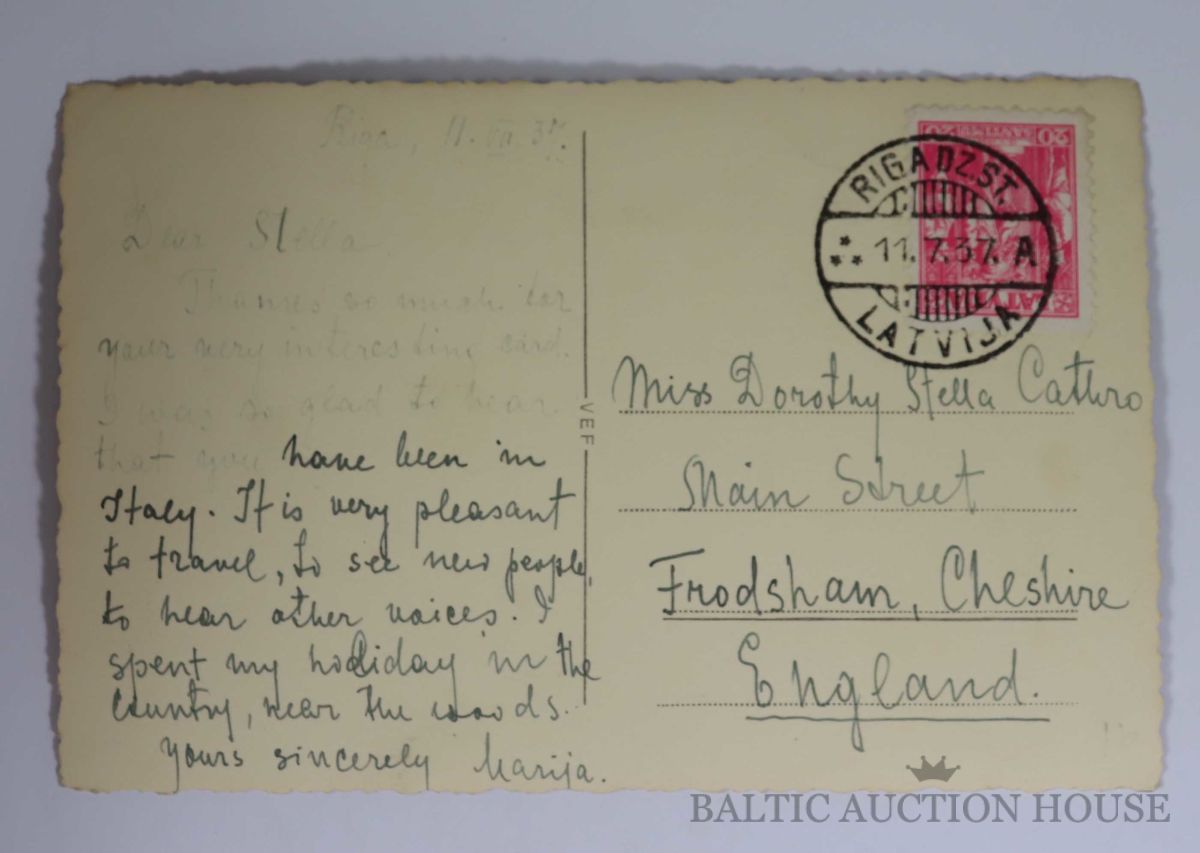 Riga, 11. VII 37.
Dear Stella
Thanks so much for
your very interesting card.
I was so glad to hear
that you have been in
Italy. It is very pleasant
to travel, to see new people,
to hear other voices. I
spent my holiday in the
country, near the woods.
Yours sincerely Marija.
VEF
20 SANTIMU 20
LATVIJA
RIGA DZ.ST.
11.7.37. A
LATVIJA
Miss Dorothy Stella Cathro
Main Street
Frodsham, Cheshire
England.
BALTIC AUCTION HOUSE